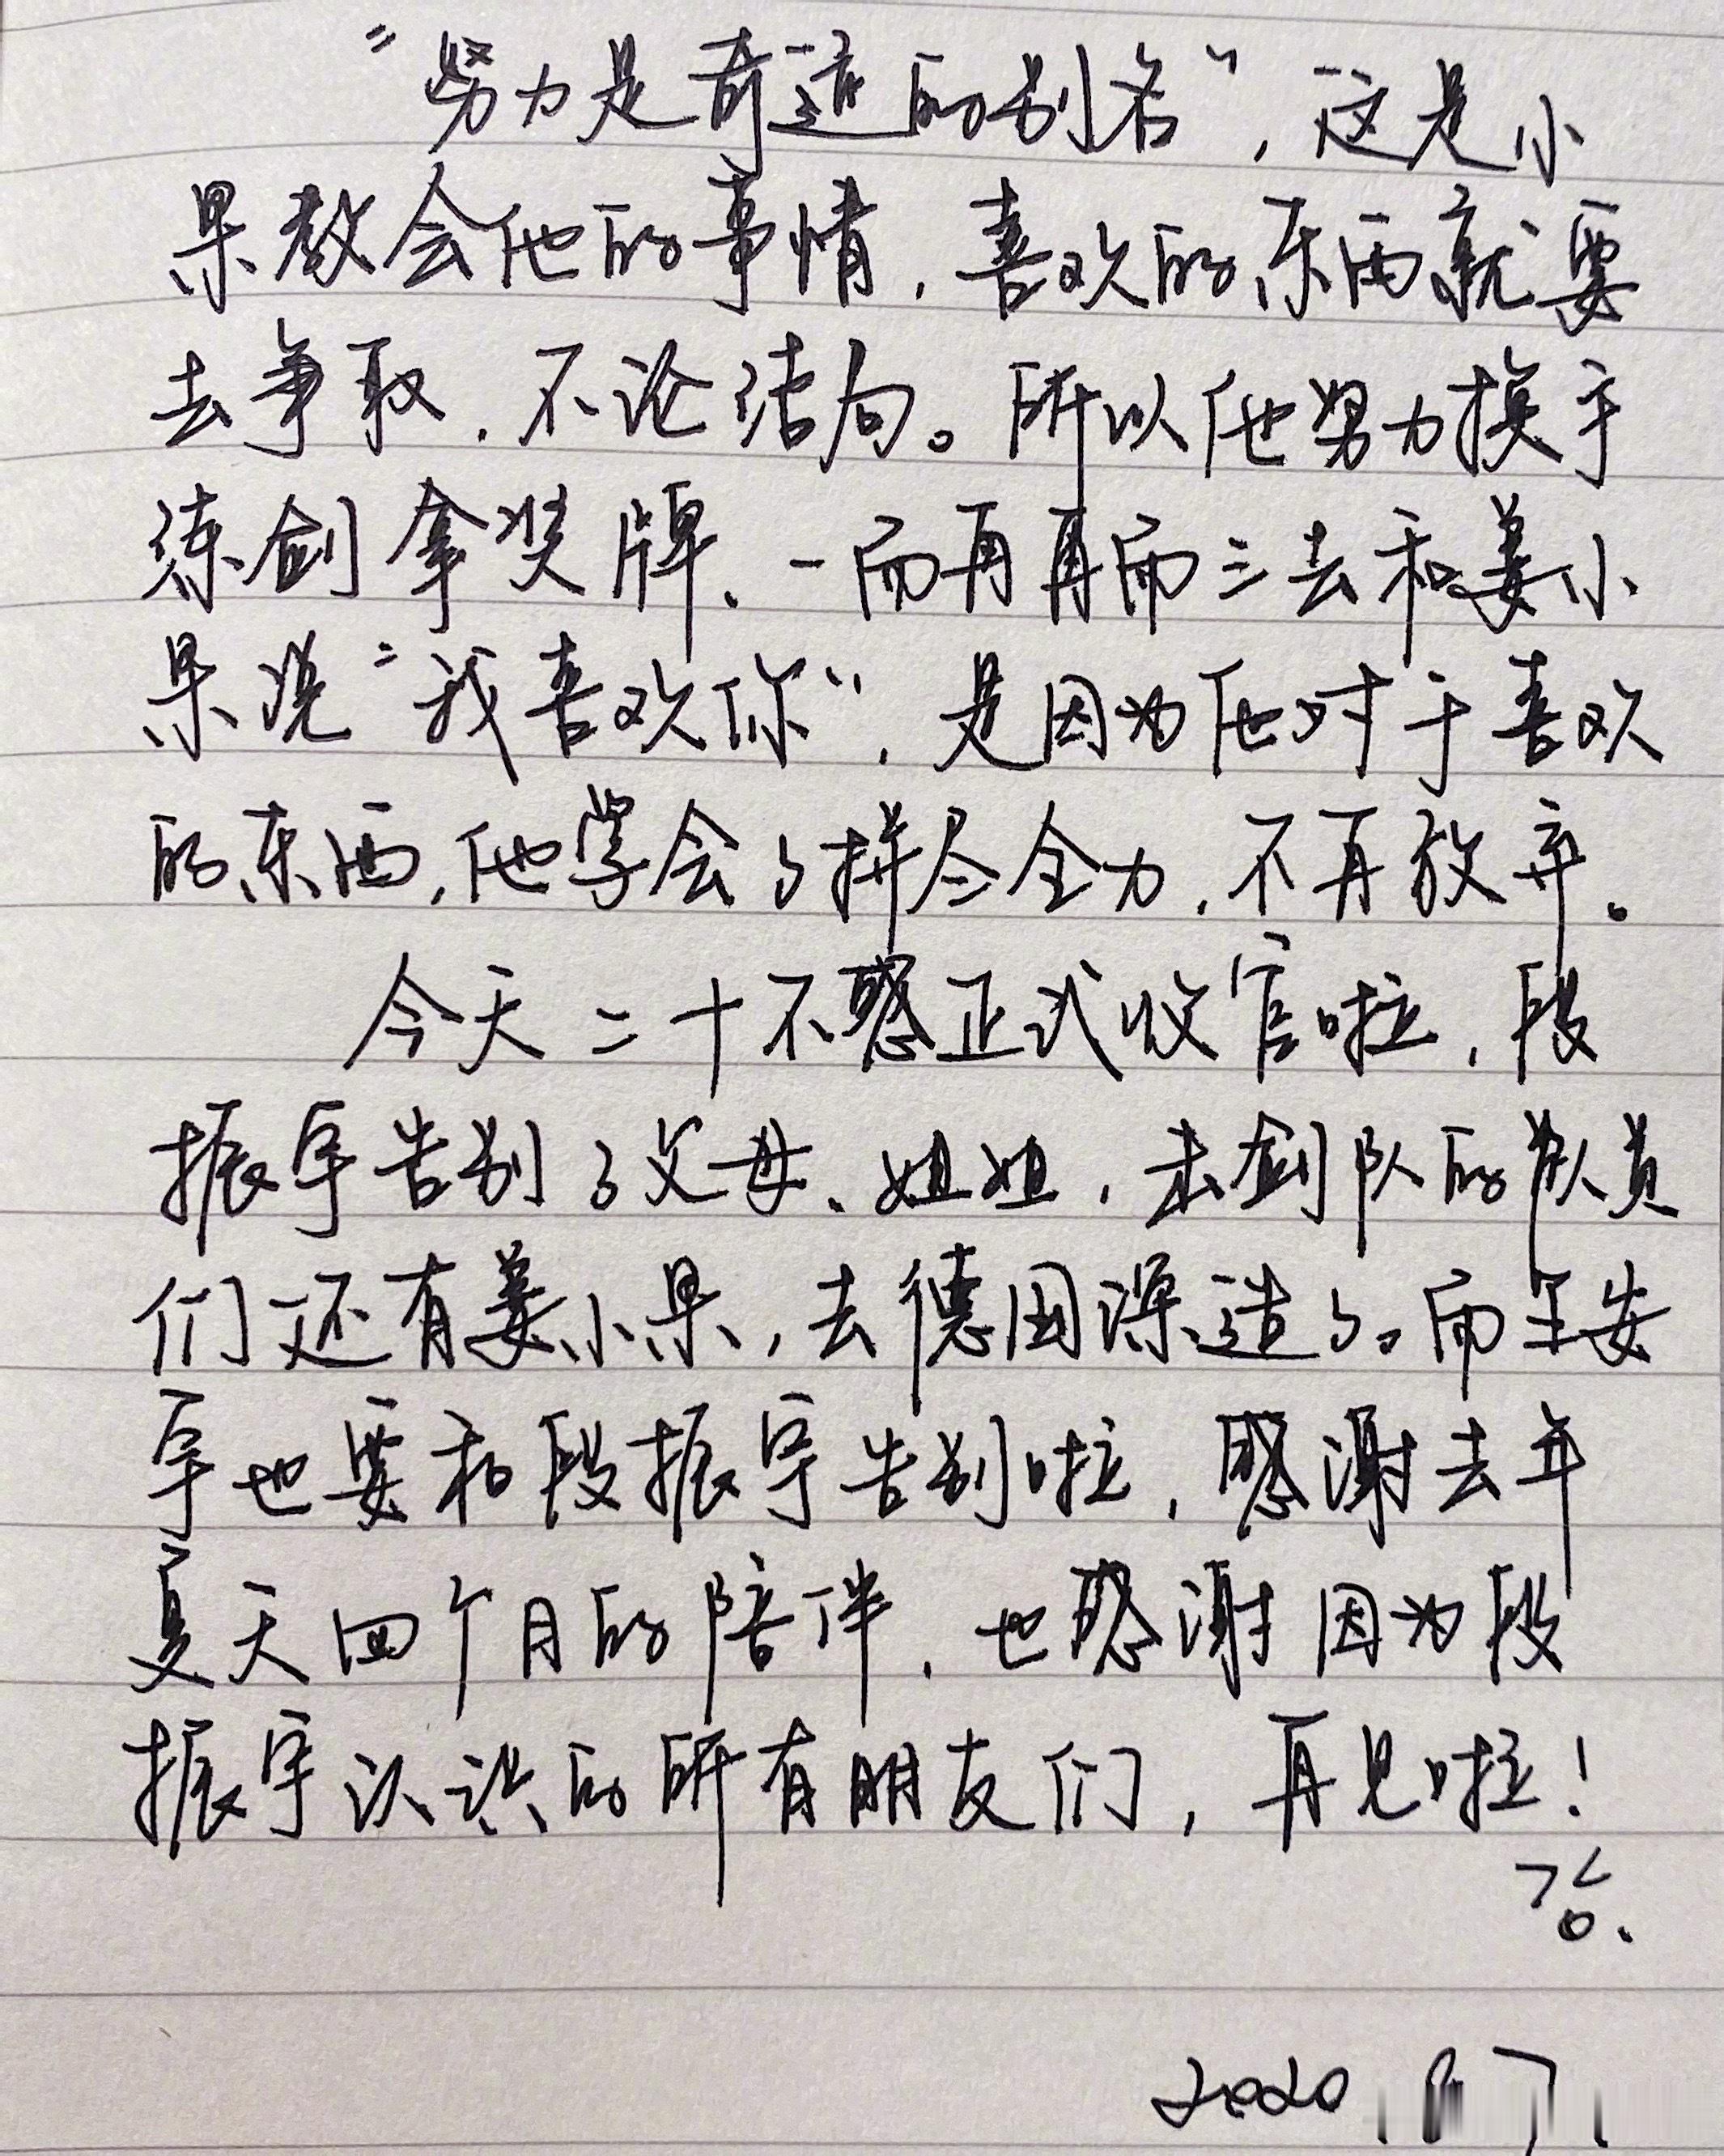 “努力是奇迹的别名”，这是小
果教会他的事情，喜欢的东西就要
去争取，不论结局。所以他努力换手
练剑拿奖牌、一而再再而三去和姜小
果说“我喜欢你”，是因为他对于喜欢
的东西，他学会了拼尽全力，不再放弃。
今天二十不惑正式收官啦，段
振宇告别了父母、姐姐，击剑队的队员
们还有姜小果，去德国深造了。而王安
宇也要和段振宇告别啦，感谢去年
夏天四个月的陪伴，也感谢因为段
振宇认识的所有朋友们，再见啦！
2020